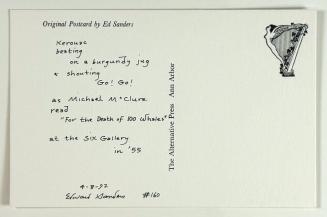 Original Postcard by Ed Sanders
Kerouac
beating
on a burgundy jug
& shouting
"Go! Go!
as Michael McClure
read
"For the Death of 100 Whales"
at the Six Gallery
in '55
4-8-92
Edward Sanders #160
The Alternative Press Ann Arbor